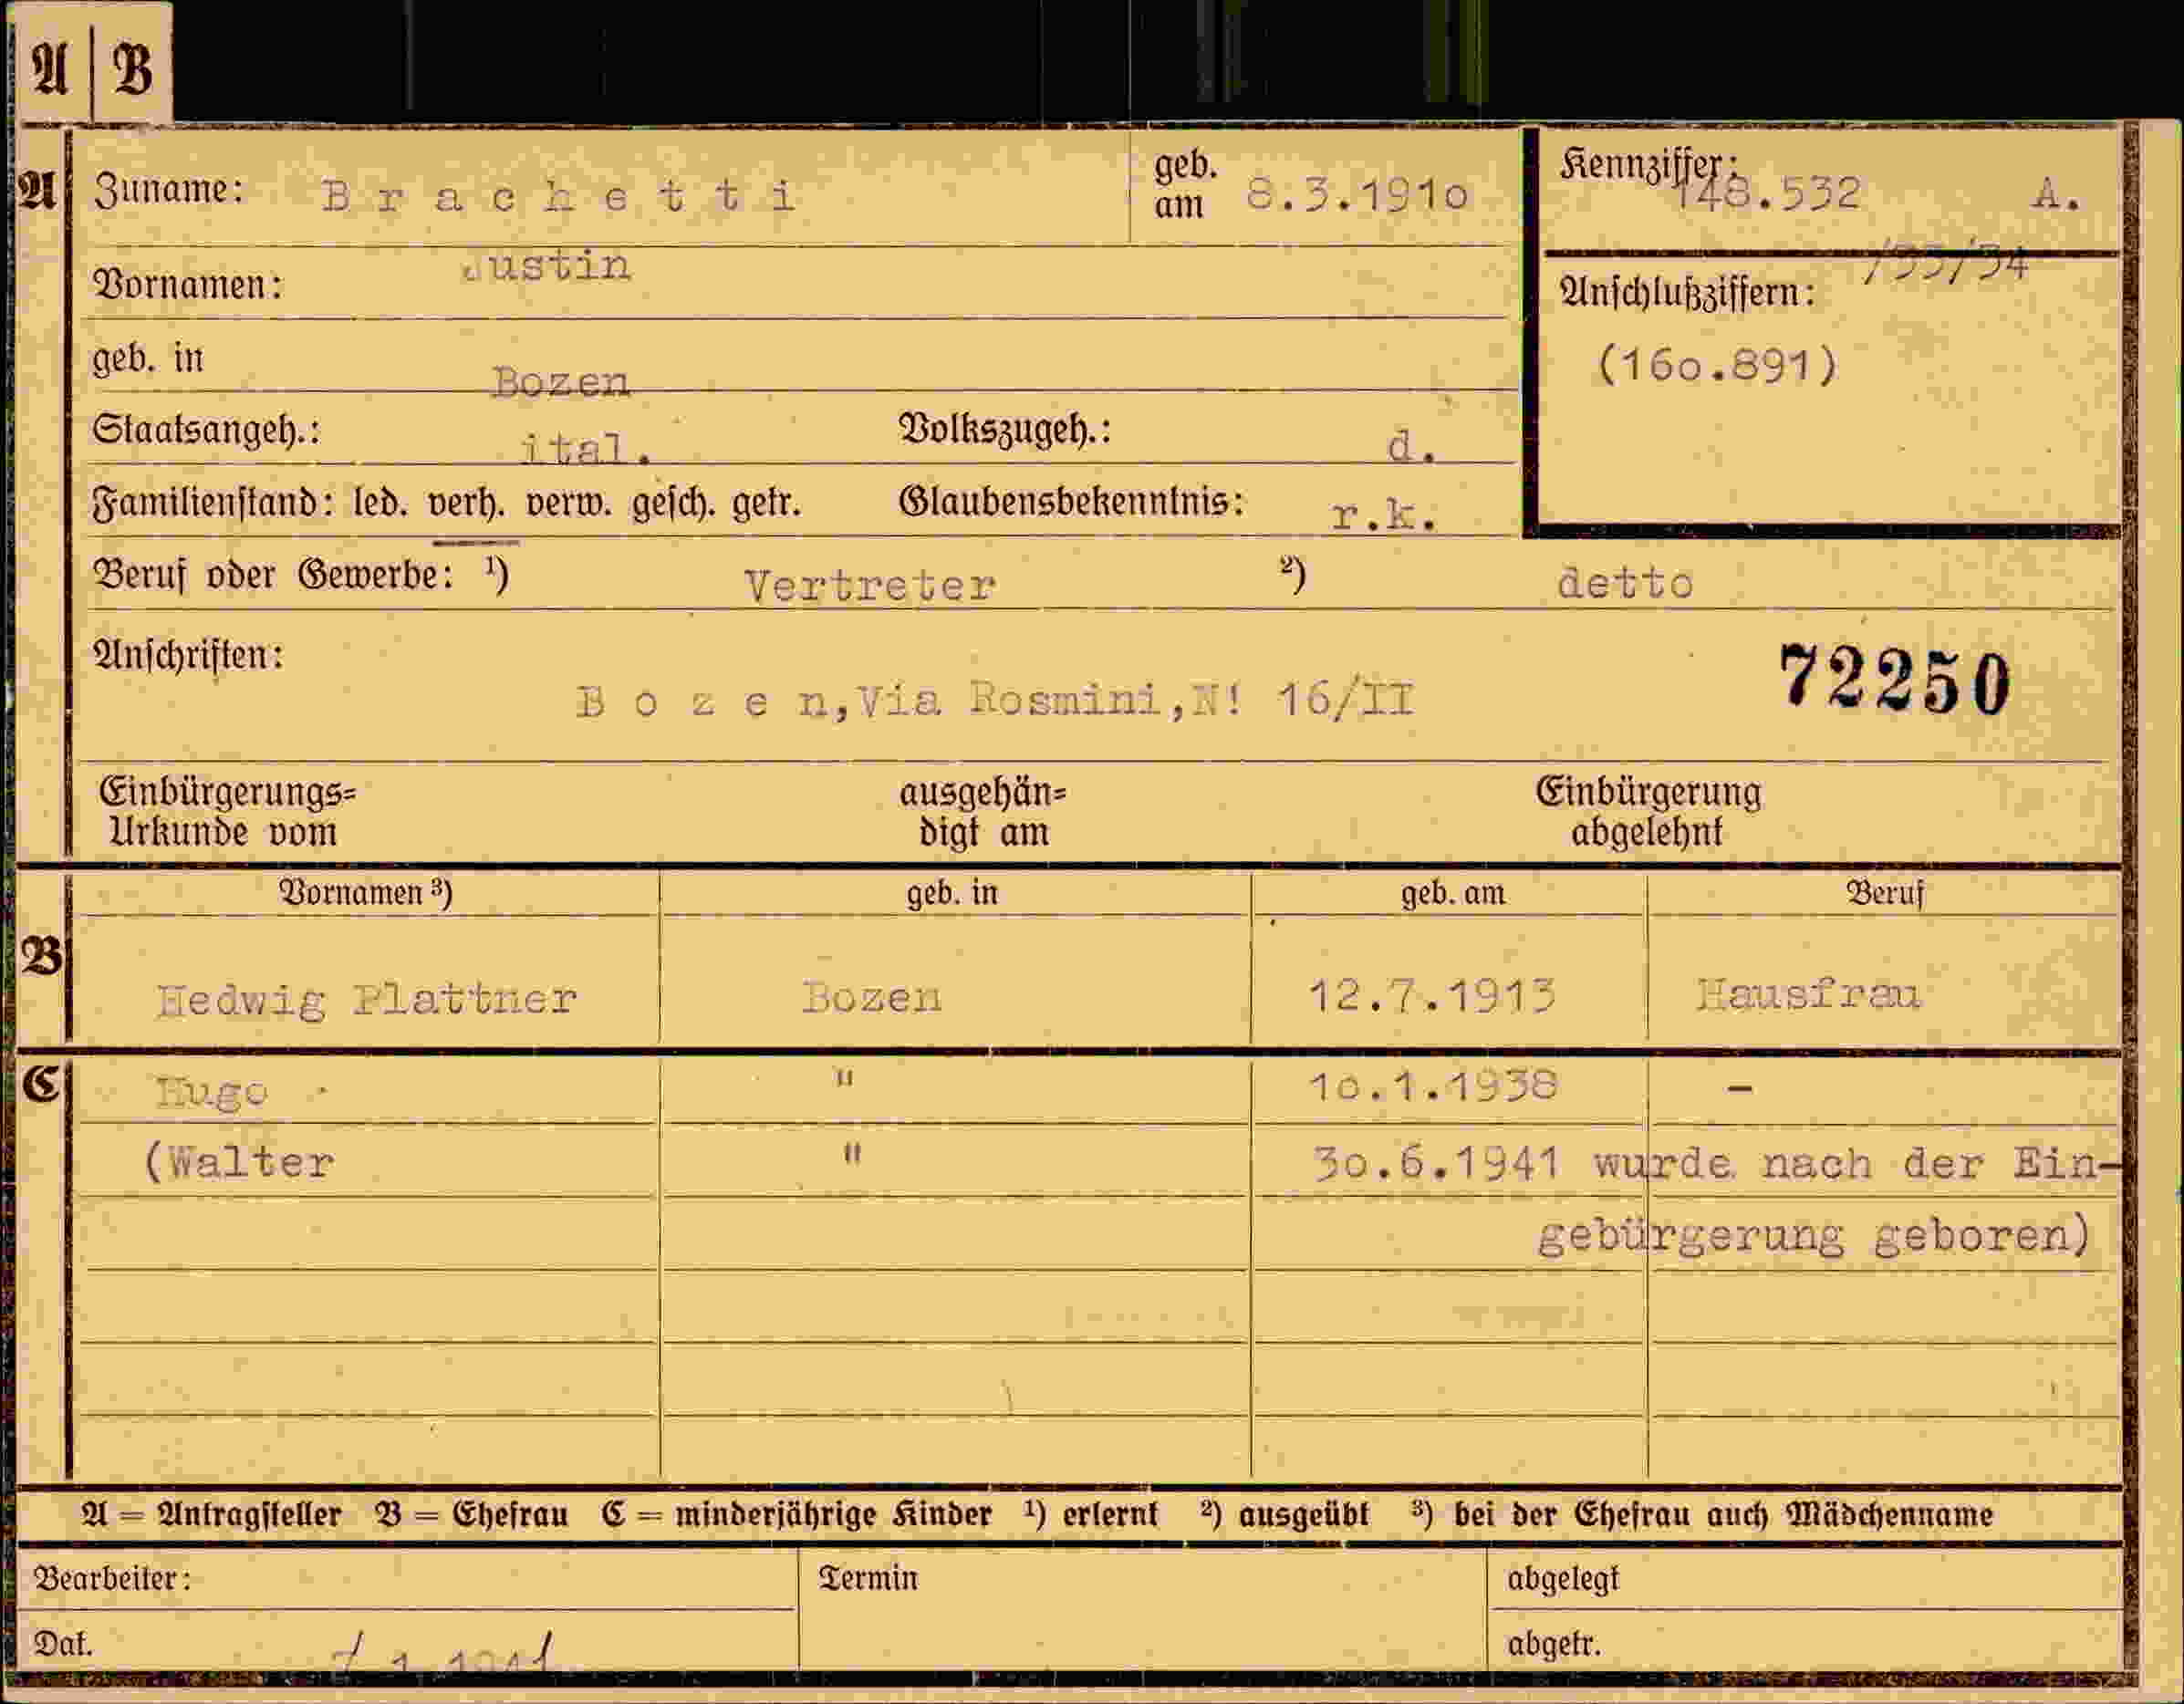 A | B
A Zuname: Brachetti geb. am 8.3.1910 Kennziffer: 148.532 A.
/33/34
Vornamen: Justin Anschlußziffern:
geb. in Bozen (160.891)
Staatsangeh.: ital. Volkszugeh.: d.
Familienstand: led. verh. verw. gesch. getr. Glaubensbekenntnis: r.k.
Beruf oder Gewerbe: ¹) Vertreter ²) detto
Anschriften: 72250
Bozen,Via Rosmini,N! 16/II
Einbürgerungs= ausgehän= Einbürgerung
Urkunde vom digt am abgelehnt
Vornamen ³) geb. in geb. am Beruf
B Hedwig Plattner Bozen 12.7.1913 Hausfrau
C Hugo " 10.1.1938 -
(Walter " 30.6.1941 wurde nach der Ein-
gebürgerung geboren)
A = Antragsteller B = Ehefrau C = minderjährige Kinder ¹) erlernt ²) ausgeübt ³) bei der Ehefrau auch Mädchenname
Bearbeiter: Termin abgelegt
Dat. abgetr.